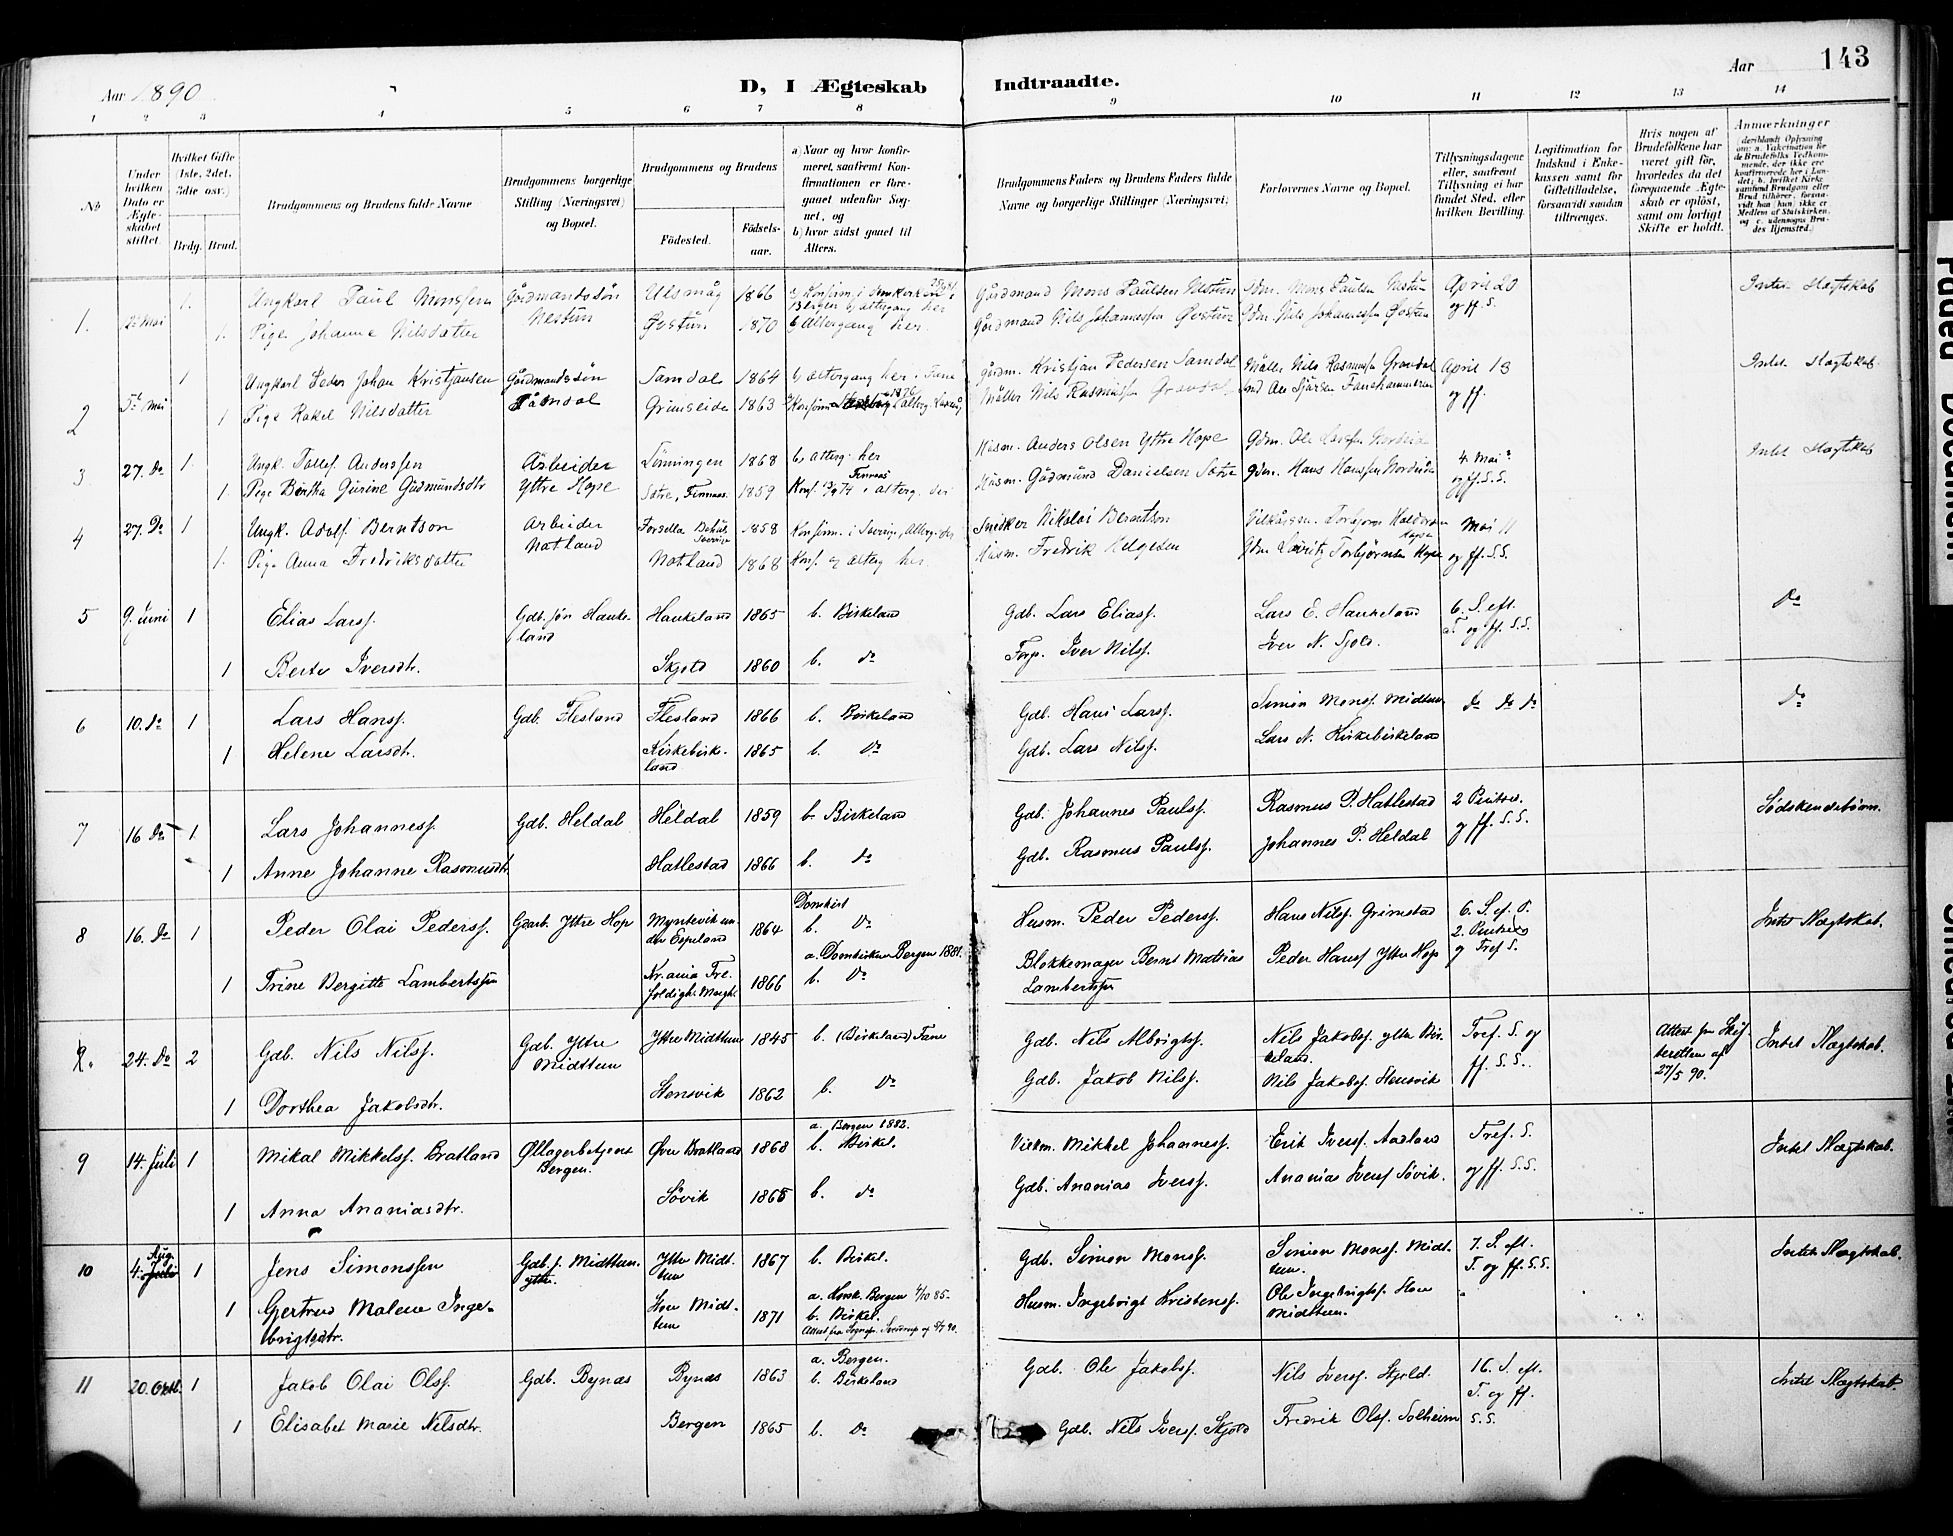 Aar 1890
D, I Ægteskab Indtraadte.
Aar 143
1 2 3 4 5 6 7 8 9 10 11 12 13 14
No
Under hvilken Dato er Ægteskabet stiftet.
Hvilket Gifte (1ste, 2det, 3die osv.)
Brdg. Brud.
Brudgommens og Brudens fulde Navne
Brudgommens borgerlige Stilling (Næringsvei) og Bopæl.
Brudgommens og Brudens
Fødested.
Fødselsaar.
a) Naar og hvor konfirmeret, saafremt Konfirmationen er foregaaet udenfor Sognet, og
b) hvor sidst gaaet til Alters.
Brudgommens Faders og Brudens Faders fulde Navne og borgerlige Stillinger (Næringsvei)
Forlovernes Navne og Bopæl.
Tillysningsdagene eller, saafremt Tillysning ei har fundet Sted, efter hvilken Bevilling.
Legitimation for Indskud i Enkekassen samt for Giftetilladelse, forsaavidt saadan tiltrænges.
Hvis nogen af Brudefolkene har været gift før, hvorledes da det foregaaende Ægteskab er opløst, samt om lovligt Skifte er holdt.
Anmærkninger
(deriblandt Oplysning om: a. Vakcination for de Brudefolks Vedkommende, der ikke ere konfirmerede her i Landet; b. hvilket Kirkesamfund Brudgom eller Brud tilhører, forsaavidt han (hun) ikke er Medlem af Statskirken, og c. udensogns Brudes Hjemsted.)
1. 2de Mai 1. Ungkarl Paul Monssen Gårdmandssøn Nestun Ulsmåg 1866 Gårdmand Mons Paulsen Nestun Gdm. Mons Paulsen Nestun April 20 og ff. S. Intet Slægtskab
1. Pige Johanne Nilsdatter Øvstun 1870 b) Altergang her. Gårdmand Niels Johannessen Øvstun Gdm. Nils Johannessen Øvstun
2 5te Mai 1 Ungkarl Peder Johan Kristjansen Gårdmandssøn Samdal Samdal 1864 b) altergang her i Fane gårdm. Kristjan Pedersen Samdal Møller Nils Rasmussen Gravdal April 13 og ff. Intet Slægtskab
1 Pige Rakel Nilsdatter Grimseide 1863 Møller Nils Rasmussen Gravdal
3 27. Do 1. Ungk. Tollef Anderssen Arbeider Ytre Hope Lønningen 1868 b) alterg. her Husm. Anders Olsen Ytre Hope Gdm. Ole Larssen Nordvik 4. Mai og ff. S. S. Intet Slægtskab
1. Pige Bertha Gurine Gudmundsdtr Sætre, Finnaas 1859 Husm. Gudmund Danielsen Sætre gdm. Hans Hanssen Nordvik
4 27. Do 1 Ungk. Adolf Berntson Arbeider Natland 1858 Konfirm. i Sverrige, Alterg. her Snedker Nikolai Berntson Mai 11 og ff. S. S.
1. Pige Anna Fredriksdatter Natland 1868 Konf. og alterg her. Husm. Fredrik Helgesen
5 9. Juni 1 Elias Larss. Gdb. søn Haukeland Haukeland 1865 b. Birkeland Gdb. Lars Eliass. Lars E. Haukeland 6. S. eft. T. og ff. S. S. Do
1 Berte Iversdtr. Skjold 1860 b. do Forp. Iver Nilss. Iver N. Sjold.
6 10. do 1 Lars Hanss. Gdb. Flesland Flesland 1866 b. Birkeland Gdb. Hans Larss. Simon Monss. Midttun do do do do
1 Helene Larsdtr. Kirkebirkeland 1865 b. do Gdb. Lars Nilss. Lars N. Kirkebirkeland
7 16 do 1 Lars Johanness. Gdb. Heldal Heldal 1859 b Birkeland Gdb. Johannes Paulss. Rasmus P. Hatlestad 2 Pintsed. og ff. S. S. Sødskendebørn.
1 Anne Johanne Rasmusdtr. Hatlestad 1866 b. do Gdb. Rasmus Paulss. Johannes P. Heldal
8 16. do 1 Peder Olai Pederss. Garb. Ytre Hop Myntevik under Espeland 1864 Domkirk b. do Husm. Peder Pederss. Hans Nilss. Grimstad 6. S. ef. P. 2. Pintsed og Tref S. Intet Slægtskab.
1 Trine Bergitte Lambertssen 1866 a. Domkirken Bergen 1881. b. do Blokkemager Bernt Mathias Lambertssen Peder Hanss Ytre Hop
24. do 2 Gdb. Nils Nilss. Gdb. Ytre Midttun Ytre Midttun 1845 b. (Birkeland) Fane Gdb. Nils Albrigtss. Nils Jakobss. ytre Birkeland. Tref. S. og ff. S. S. Attest fra Skifteretten af 27/5 90. Intet Slægtskab.
1 Dorthea Jakobsdtr. Stensvik 1862 b. do Gdb. Jakob Nilss. Nils Jakobss. Stensvik
9 14. Juli 1 Mikal Mikkelss. Bratland Øllagerbetjent Bergen. Øvre Bratland 1868 a. Bergen 1882. b. Birkel. Mikkel Johanness. Erik Iverss. Aadland Tref. S. og ff. S. S. Intet Slægtskab.
1 Anna Ananiasdtr. Søvik 1865 b. do Gdb. Ananias Iverss. Ananias Iverss Søvik.
10 4. Aug. Juli 1 Jens Simonssen Gdb. s. Midttun ytre. Ytre Midttun 1867 b. Birkel. Gdb. Simon Monss. Simon Monss. Midttun. 7. S. eft. T. og ff. S. S. Intet Slægtskab.
1 Gjertrud Malene Ingebrigtsdtr. Hou Midttun 1871 a. Korsk. Bergen 4/10 85. b. Birkel. Husm. Ingebrigt Kristenss. Ole Ingebrigtss. Hou Midttun.
11 20. Oktb. 1 Jakob Olai Olss. Gdb. Bynæs Bynæs 1863 a. Bergen. b. Birkeland Gdb. Ole Jakobss. Nils Iverss. Skjold. 16. S. eft. T. og ff. S. S. Intet Slægtskab.
1 Elisabet Marie Nilsdtr. Bergen 1865 b. do Gdb. Nils Iverss. Skjold Fredrik Olss. Solheim